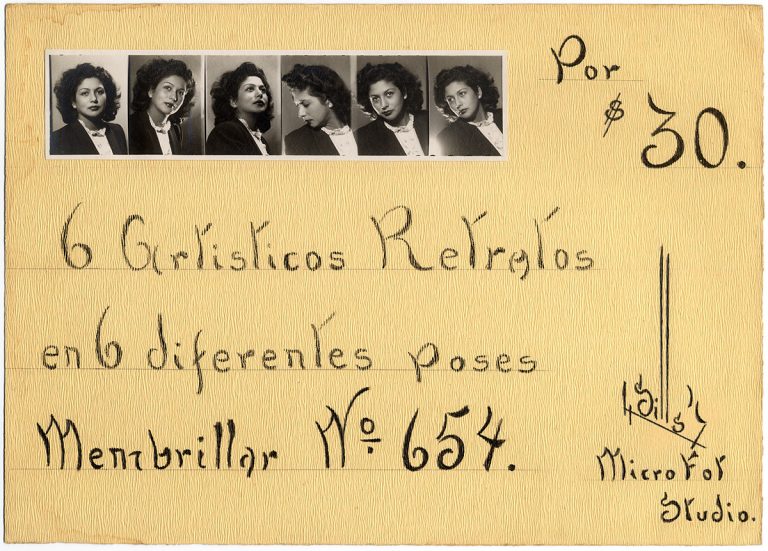 Por
$ 30.
6 Artisticos Retratos
en 6 diferentes poses
Membrillar Nº 654.
"Sills"
MicroFot
Studio.